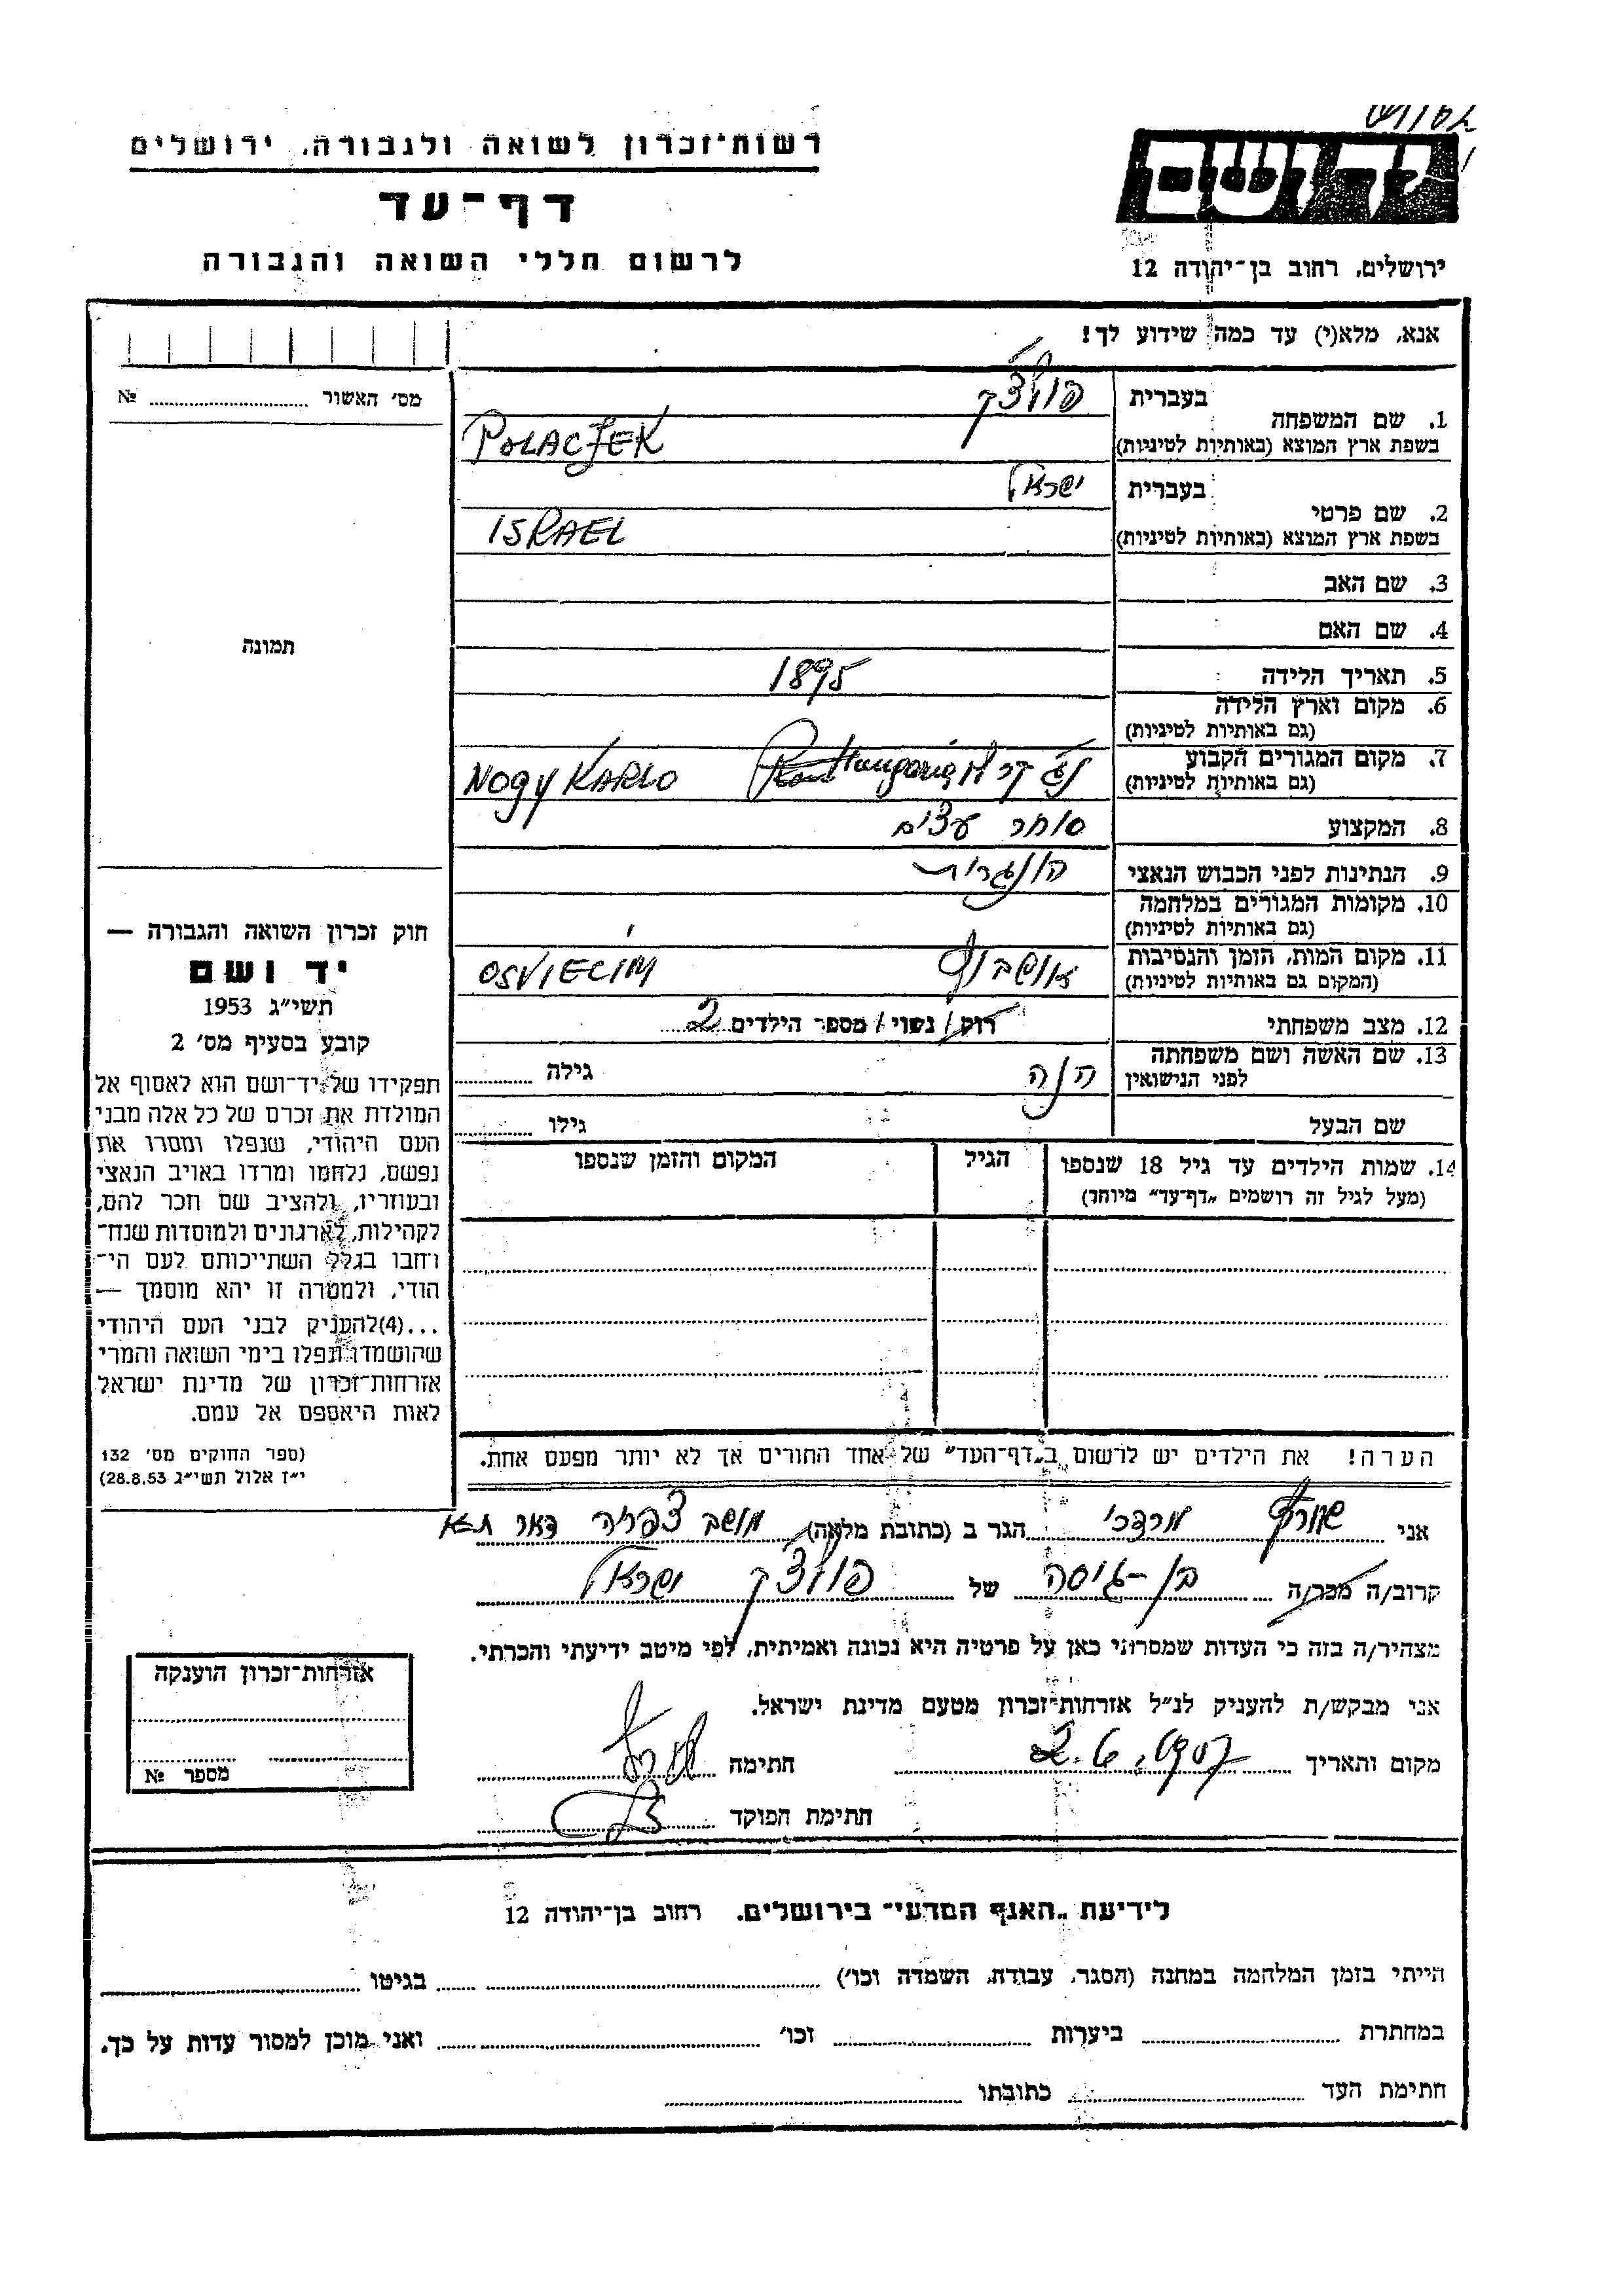 יד ושם
ירושלים, רחוב בן־יהודה 12
רשות־זכרון לשואה ולגבורה, ירושלים
דף־עד
לרשום חללי השואה והגבורה
אנא, מלא(י) עד כמה שידוע לך!
מס׳ האשור №
בעברית פולצק
1. שם המשפחה
בשפת ארץ המוצא (באותיות לטיניות) POLACZEK
בעברית ישראל
2. שם פרטי
בשפת ארץ המוצא (באותיות לטיניות) ISRAEL
3. שם האב
4. שם האם
5. תאריך הלידה 1895
6. מקום וארץ הלידה
(גם באותיות לטיניות)
7. מקום המגורים הקבוע
(גם באותיות לטיניות) NOGY KARLO
8. המקצוע סוחר עצים
9. הנתינות לפני הכבוש הנאצי הונגרית
10. מקומות המגורים במלחמה
(גם באותיות לטיניות)
11. מקום המות, הזמן והנסיבות
(המקום גם באותיות לטיניות) OSVIECIM
12. מצב משפחתי רוק / נשוי / מספר הילדים 2
13. שם האשה ושם משפחתה
לפני הנישואין הנה גילה
שם הבעל גילו
14. שמות הילדים עד גיל 18 שנספו הגיל המקום והזמן שנספו
(מעל לגיל זה רושמים „דף־עד״ מיוחד)
הערה! את הילדים יש לרשום ב„דף־העד״ של אחד ההורים אך לא יותר מפעם אחת.
תמונה
חוק זכרון השואה והגבורה —
יד ושם
תשי״ג 1953
קובע בסעיף מס׳ 2
תפקידו של יד־ושם הוא לאסוף אל
המולדת את זכרם של כל אלה מבני
העם היהודי, שנפלו ומסרו את
נפשם, נלחמו ומרדו באויב הנאצי
ובעוזריו, ולהציב שם וזכר להם,
לקהילות, לארגונים ולמוסדות שנח־
רבו בגלל השתייכותם לעם הי־
הודי, ולמטרה זו יהא מוסמך —
...(4)להעניק לבני העם היהודי
שהושמדו ונפלו בימי השואה והמרי
אזרחות־זכרון של מדינת ישראל
לאות היאספם אל עמם.
(ספר החוקים מס׳ 132
י״ז אלול תשי״ג 28.8.53)
אני שוורץ מרדכי הגר ב (כתובת מלאה) מושב צפריה דאר
קרוב/ה מכר/ה בן-גיסה של פולצק ישראל
מצהיר/ה בזה כי העדות שמסרתי כאן על פרטיה היא נכונה ואמיתית, לפי מיטב ידיעתי והכרתי.
אני מבקש/ת להעניק לנ״ל אזרחות־זכרון מטעם מדינת ישראל.
מקום והתאריך חתימה
חתימת הפוקד
אזרחות־זכרון הוענקה
מספר №
לידיעת „האגף המדעי״ בירושלים, רחוב בן־יהודה 12
הייתי בזמן המלחמה במחנה (הסגר, עבודת, השמדה וכו׳) בגיטו
במחתרת ביערות וכו׳ ואני מוכן למסור עדות על כך.
חתימת העד כתובתו